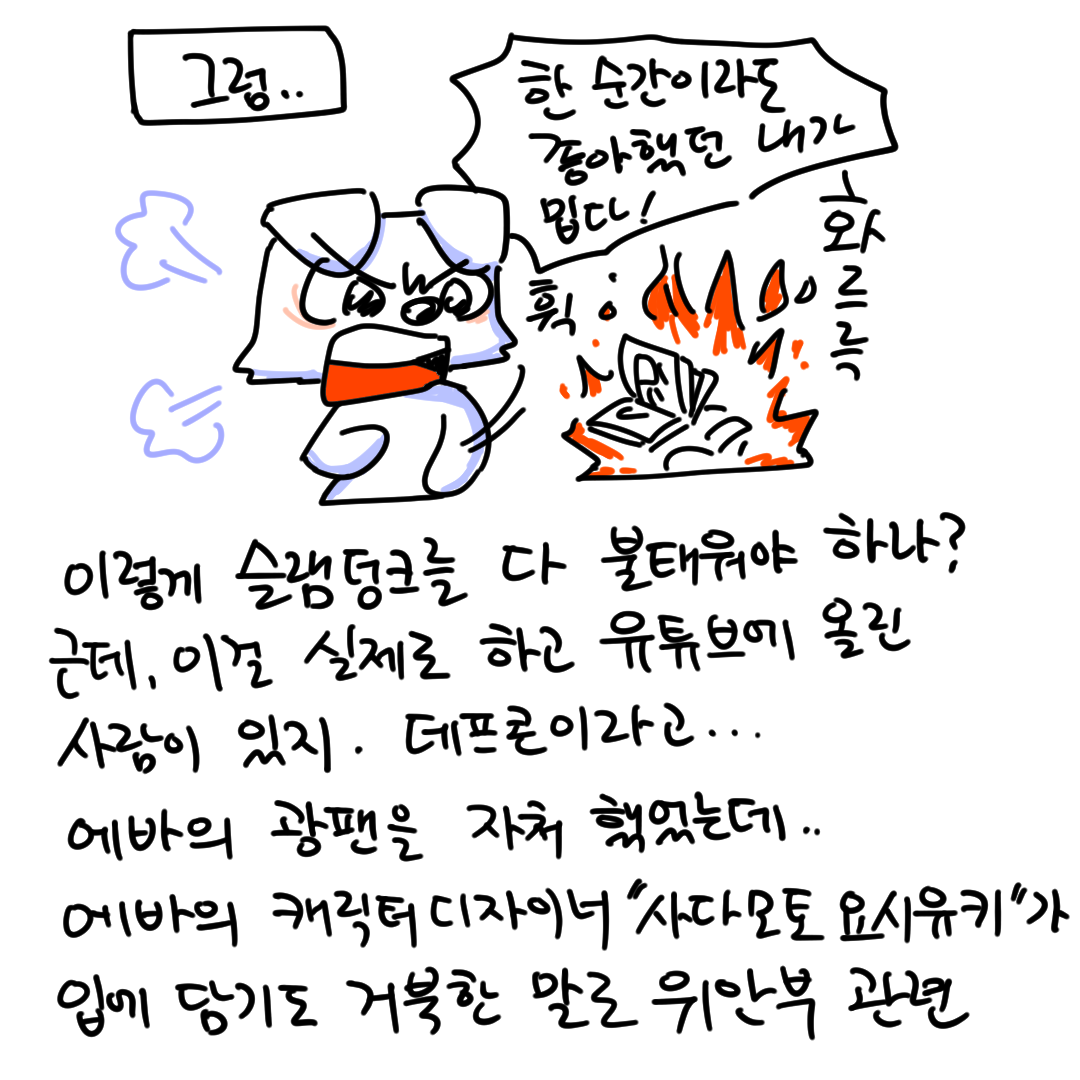 그럼..
한 순간이라도
좋아했던 내가
밉다!
휙
화르륵
이렇게 슬램덩크를 다 불태워야 하나?
근데, 이걸 실제로 하고 유튜브에 올린
사람이 있지. 데프콘이라고...
에바의 광팬을 자처 했었는데..
에바의 캐릭터 디자이너 "사다모토 요시유키"가
입에 담기도 거북한 말로 위안부 관련